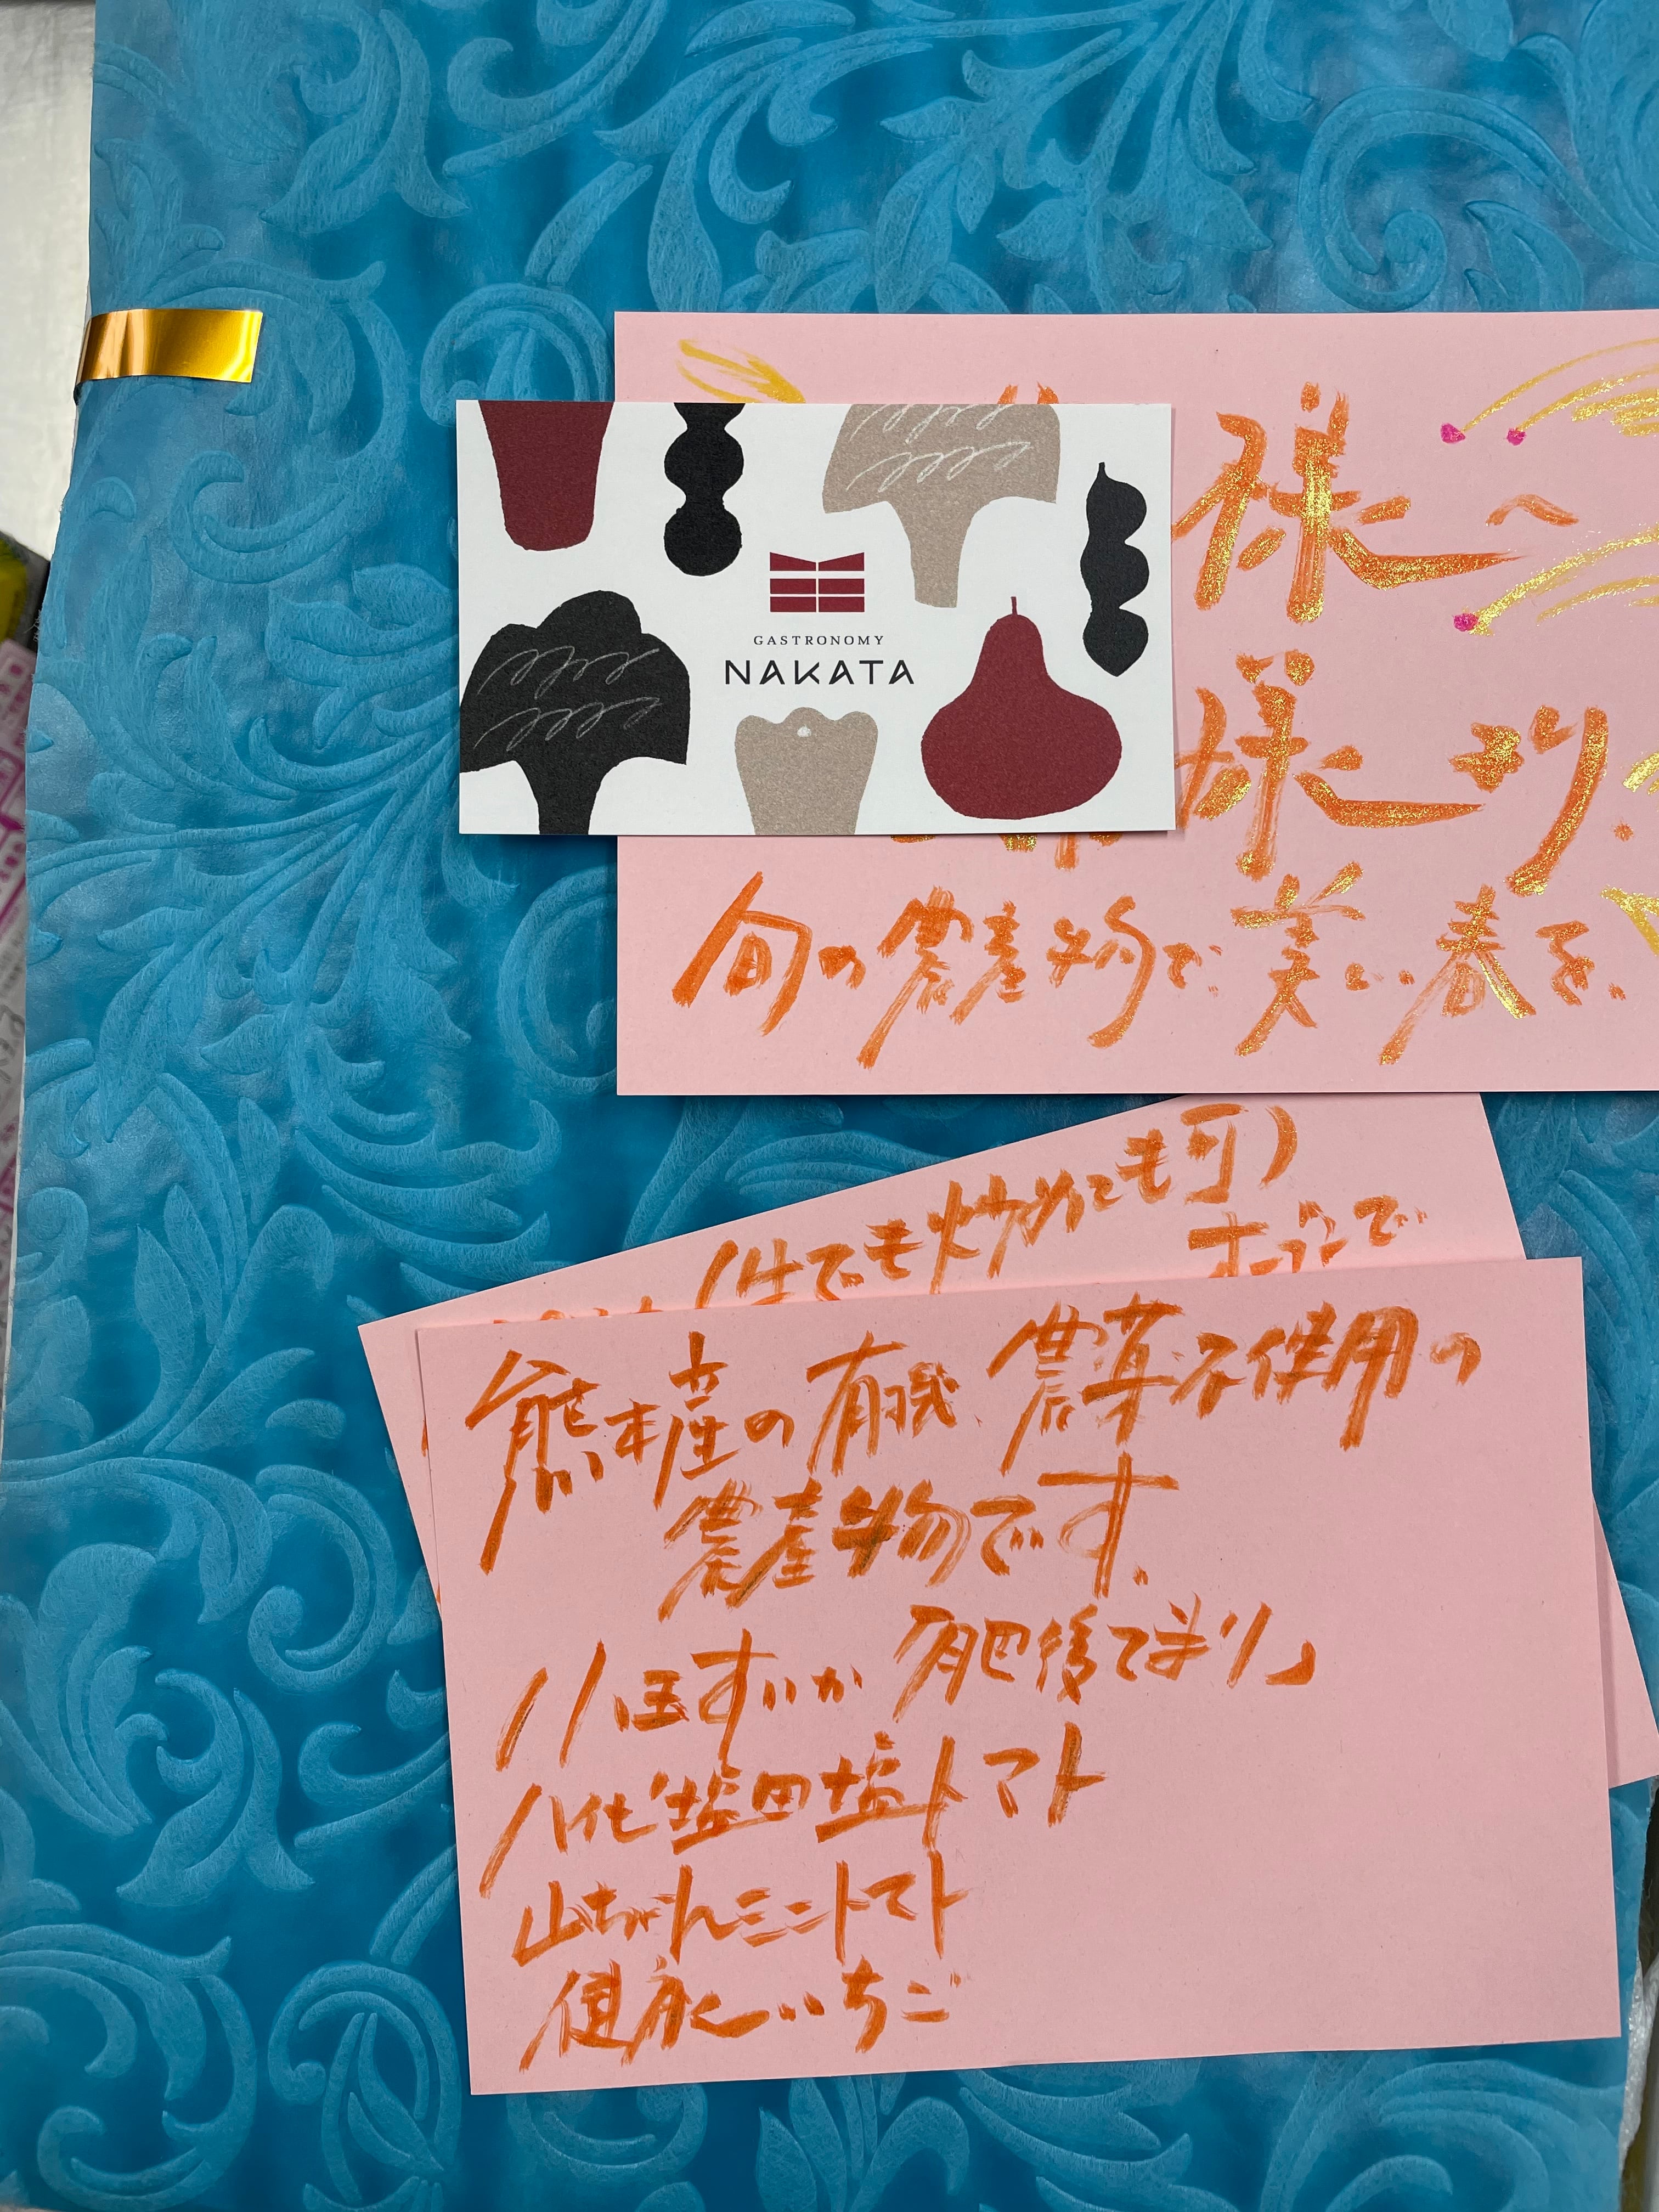 様へ
GASTRONOMY
NAKATA
様より.
旬の農産物で、美しい春を、
(生でも炒めても可)
熊本産の有機、農薬不使用の
農産物です.
小玉すいか 「肥後てまり」
八代塩田塩トマト
山ちゃんミニトマト
健康いちご